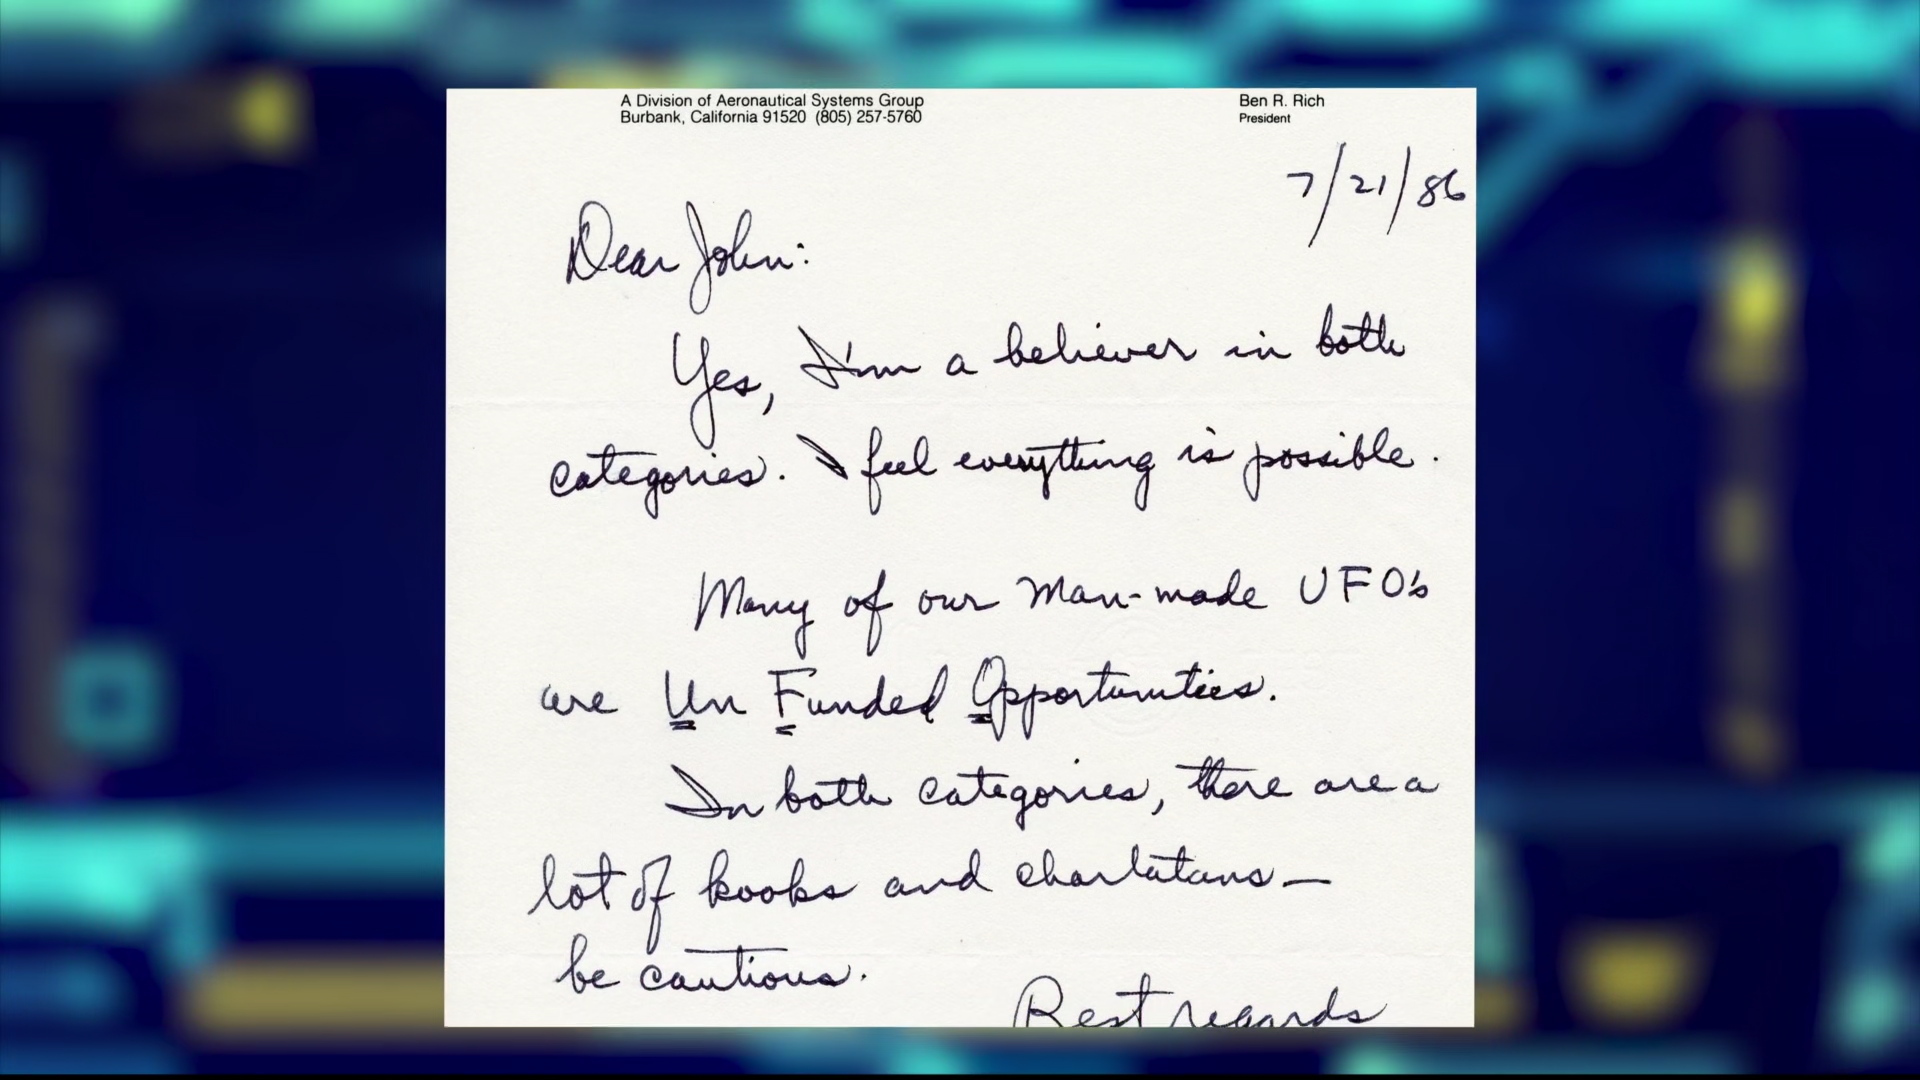 A Division of Aeronautical Systems Group
Burbank, California 91520 (805) 257-5760
Ben R. Rich
President
7/21/86
Dear John:
Yes, I'm a believer in both
categories. I feel everything is possible.
Many of our man-made UFO's
are Un Funded Opportunities.
In both categories, there are a
lot of kooks and charlatans —
be cautious.
Best regards